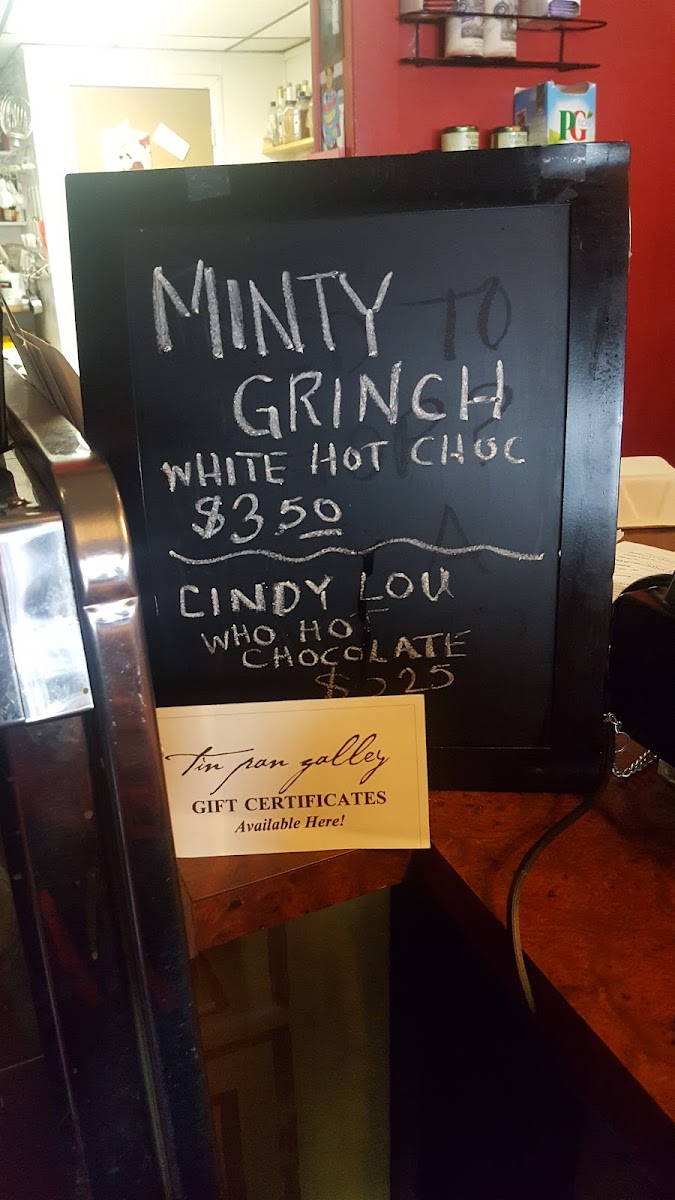 PG
MINTY
GRINCH
WHITE HOT CHOC
$3.50
CINDY LOU
WHO HO
CHOCOLATE
25
tin pan galley
GIFT CERTIFICATES
Available Here!